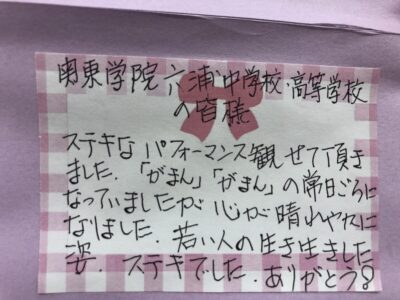 関東学院 六浦中学校・高等学校
の皆様
ステキな パフォーマンス観せて頂き
ました.「がまん」「がまん」の常日ごろに
なっていましたが 心が 晴れやかに
なりました. 若い人の生き生きした
姿. ステキでした. ありがとう